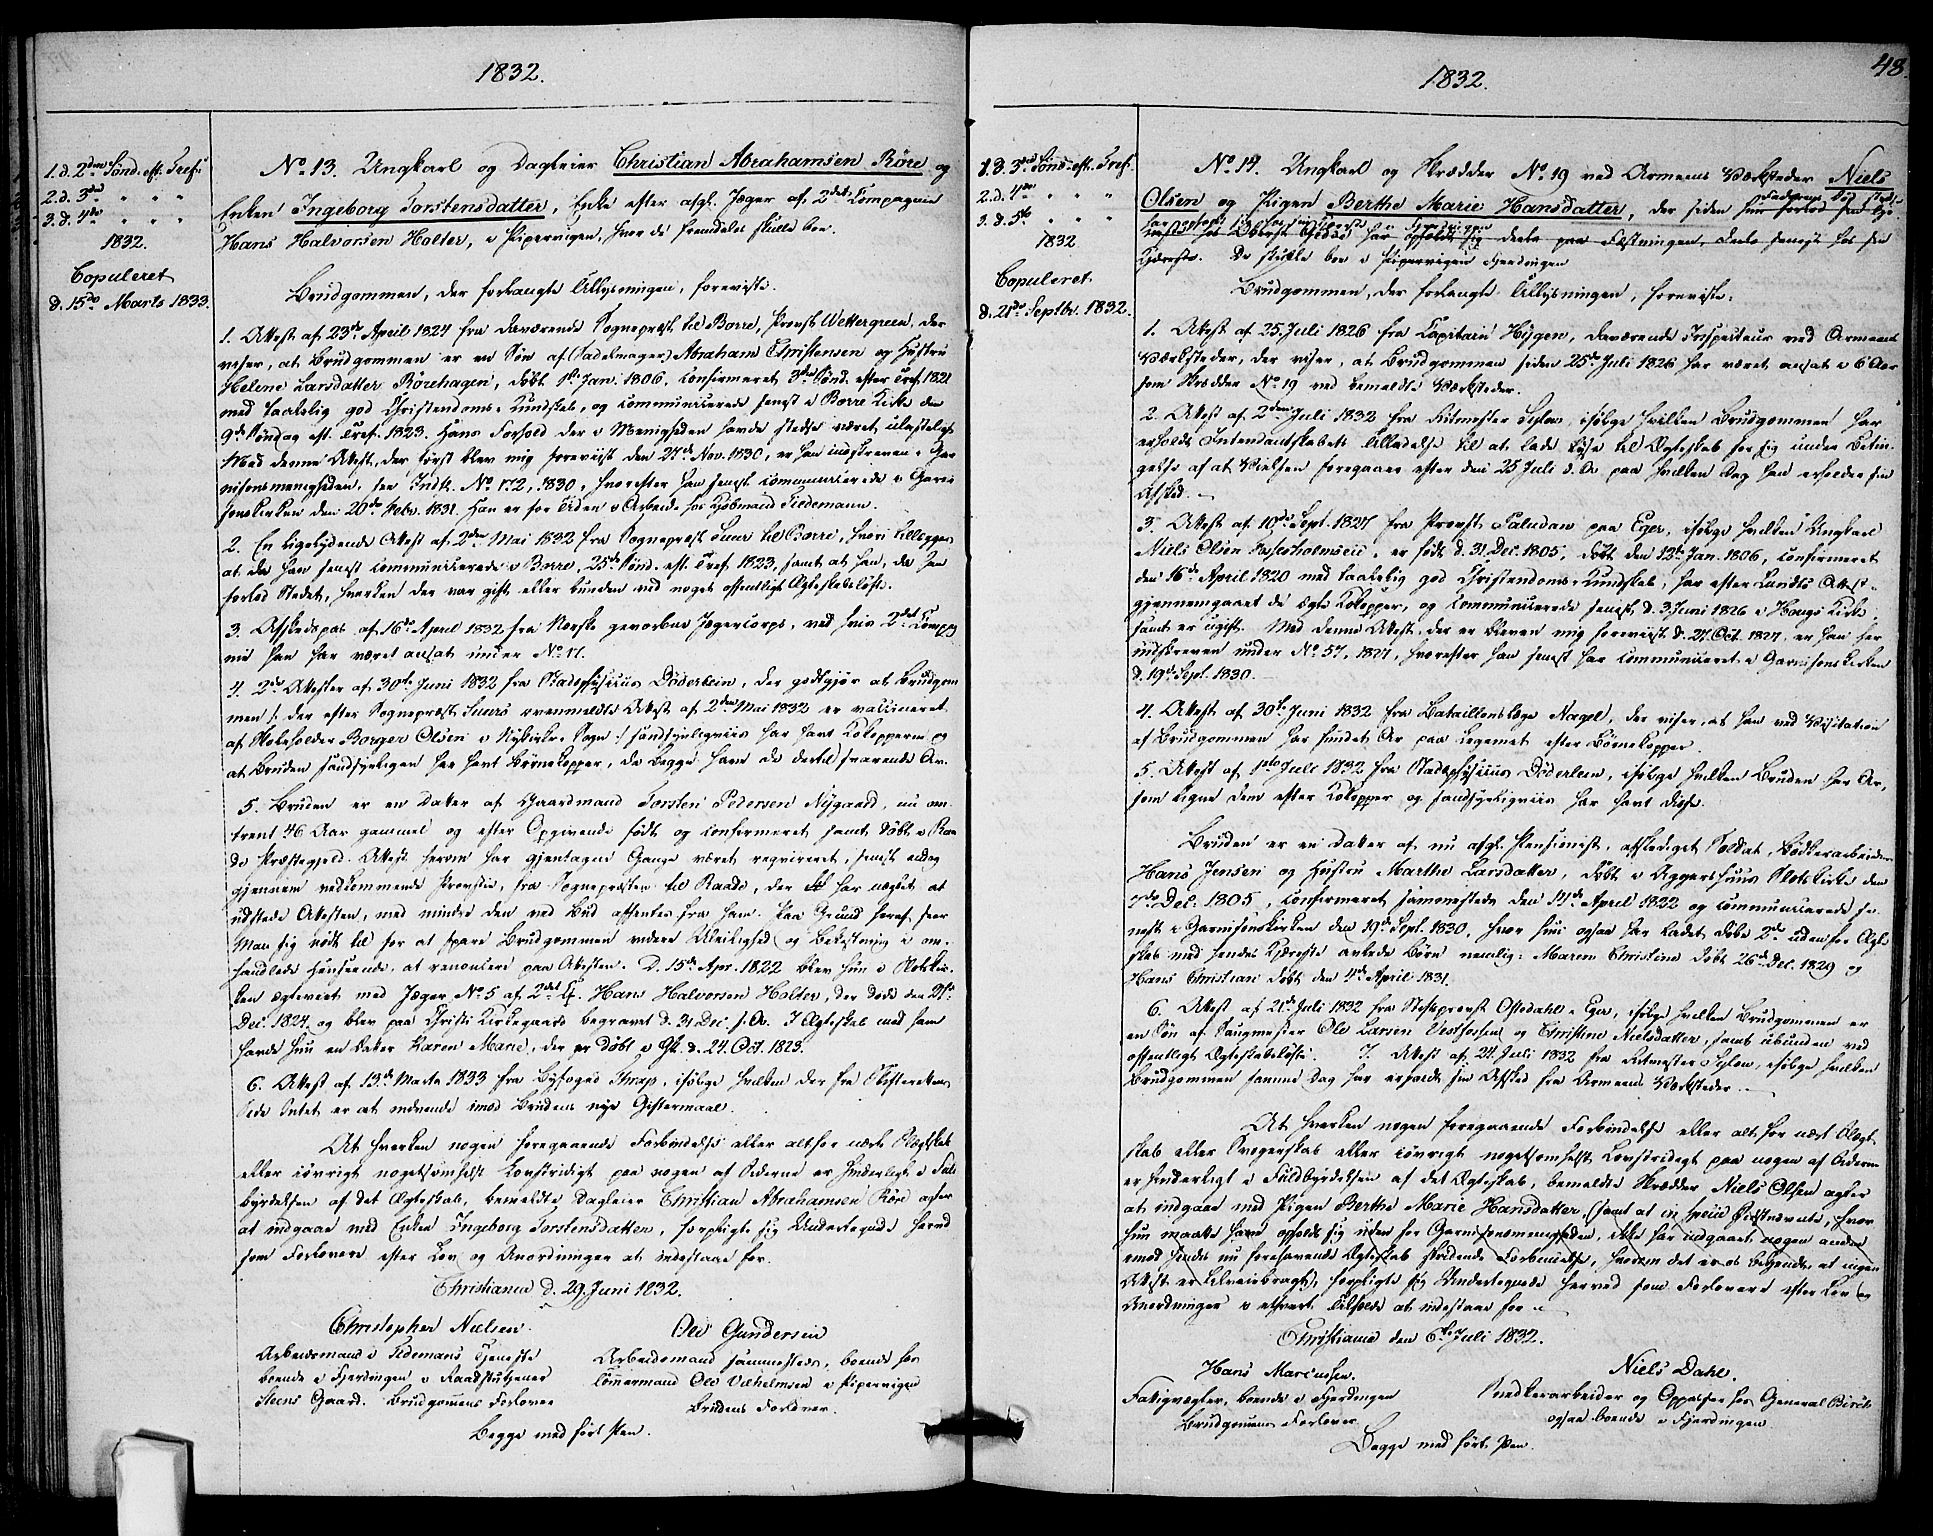 1832.
1. d. 2den Sønd. eft. Tref:
2. d. 3die " " "
3. d. 4de " " "
1832.
Copuleret
d. 15de Marts 1833.
No. 13. Ungkarl og Dagleier Christian Abrahamsen Röre og
Enken Ingeborg Torstensdatter, Enke efter afg. Jæger af 2det Compagnie
Hans Halvorsen Holter, i Pipervigen, hvor de fremdeles skulle boe.
Brudgommen, der forlangte Tillysningen, foreviste:
1. Attest af 23de April 1824 fra daværende Sognepræst til Borre, Provst Wettergreen, der
viser, at Brudgommen er en Søn af (Sadelmager) Abraham Christensen og Hustru
Helene Larsdatter Rörehagen, døbt 1ste Jan. 1806, confirmeret 3die Sønd. efter Tref. 1821
med taalelig god Christendoms-Kundskab, og communicerede senest i Borre Kirke den
9de Søndag eft. Tref. 1823. Hans Forhold der i Menigheden havde stedse været ulasteligt.
Med denne Attest, der først blev mig foreviist den 27de Nov. 1830, er han indskreven i Gar
nisonsmenigheden, see Indtr. No. 172, 1830, hvorefter han senest communicerede i Garni
sonskirken den 20de Febr. 1831. Han er for Tiden i Arbeide hos Kjøbmand Tiedemann.
2. En ligelydende Attest af 2den Mai 1832 fra Sognepræst Suur til Borre, hvori tillægges
at da han senest communicerede i Borre, 25de Sønd. eft. Tref. 1823, samt at han, da han
forlod Stedet, hverken der var gift eller bunden ved noget offentligt Ægteskabsløfte.
3. Afskedspas af 16de April 1832 fra Norske gevorbne Jægercorps, ved hvis 2det Compag
nie han har været ansat under No. 17.
4. 2de Attester af 30te Juni 1832 fra Stadsphysicus Döderlein, der godtgjør at Brudgom
men /: der efter Sognepræst Suurs ovenmeldte Attest af 2den Mai 1832 er vaccineret
af Skoleholder Borger Olsen i Nykirke Sogn :/ sandsynligviis har havt Kokopperne og
at Bruden sandsynligen har havt Børnekopper, da begge have de dertil svarende Ar.
5. Bruden er en Datter af Gaardmand Torsten Pedersen Nygaard, nu om
trent 46 Aar gammel og efter Opgivende født og confirmeret samt døbt i Raa
de Præstegjeld. Attest herom har gjentagne Gange været requireret, senest endog
gjennem vedkommende Provstie, fra Sognepræsten til Raade, der har nægtet at
udstede Attesten, med mindre den ved Bud afhentes fra ham. Paa Grund heraf, seer
Man sig nødt til for at spare Brudgommen videre Uleilighed og Bekostning i om
handlede Henseende, at renoncere paa Attesten. D. 15de Apr. 1822 blev hun i Slotskir
ken ægteviet med Jæger No. 5 af 2det C. Hans Halvorsen Holter, der døde den 21de
Dec. 1824 og blev paa Christi Kirkegaard begravet d. 31 Dec. s. A. I Ægteskab med ham
havde hun en Datter Karen Marie, der er døbt i Gk. d. 24. Oct. 1823.
6. Attest af 13de Marts 1833 fra Byfoged Thrap, ifølge hvilken der fra Skifterettens
Side Intet er at indvende imod Brudens nye Giftermaal.
At hverken nogen foregaaende Forbindelse eller altfor nært Slægtskab
eller iövrigt nogetsomhelst Lovstridigt paa nogen af Siderne er hinderligt i Fuld
byrdelsen af det Ægteskab, bemeldte Dagleier Christian Abrahamsen Röre agter
at indgaae med Enken Ingeborg Torstensdatter, forpligte sig Undertegnede herved
som Forlovere efter Lov og Anordninger at indestaae for.
Christiania d. 29. Juni 1832.
Christopher Nielsen. Ole Gundersen
Arbeidsmand i Tiedemans Tjeneste
boende i Fjerdingen i Raadstutjener
Steens Gaard. Brudgommens Forlover
Arbeidsmand sammesteds, boende hos
Tømmermand Ole Vilhelmsen i Pipervigen
Brudens Forlover.
Begge med ført Pen.
1832.
48.
1. d. 3die Sønd. eft. Tref.
2. d. 4de " " "
3. d. 5te " " "
1832
Copuleret
d. 21de Septbr. 1832.
No. 14. Ungkarl og Skrædder No. 19 ved Armeens Værksteder Niels
Olsen og Pigen Berthe Marie Hansdatter, der siden
har opholdt sig deels paa Fæstningen, deels senest hos sin
Kjæreste. De skulle boe i Fjerdingen
Brudgommen, der forlangte Tillysningen, foreviste:
1. Attest af 25. Juli 1826 fra Capitain Hygen, daværende Inspecteur ved Armeens
Værksteder, der viser, at Brudgommen siden 25de Juli 1826 har været ansat i 6 Aar
som Skrædder No. 19 ved bemeldte Værksteder.
2. Attest af 2den Juli 1832 fra Ritmester Sylow, ifølge hvilken Brudgommen har
erholdt Intendantskabets Tilladelse til at lade lyse til Ægteskab for sig under Betin
gelse af at Vielsen foregaaer efter den 25 Juli d. A. paa hvilken Dag han erholder sin
Afsked.
3. Attest af 10de Sept. 1827 fra Provst Paludan paa Eger, ifølge hvilken Ungkarl
Niels Olsen er født d. 31 Dec. 1805, døbt den 12te Jan. 1806, confirmeret
den 16de April 1820 med taalelig god Christendoms-Kundskab, har efter Lundts Attest
gjennemgaaet de ægte Kokopper, og communicerede senest d. 3 Juni 1826 i Haugs Kirke
samt er ugift. Med denne Attest, der er bleven mig foreviist d. 27. Oct. 1827, er han her
indskreven under No. 57, 1827, hvorefter han senest har communiceret i Garnisonskirken
d. 19de Sept. 1830.
4. Attest af 30te Juni 1832 fra Bataillonslæge Nagel, der viser, at han ved Visitation
af Brudgommen har fundet Ar paa Legemet efter Börnekopper.
5. Attest af 1ste Juli 1832 fra Stadsphysicus Döderlein, ifølge hvilken Bruden har Ar,
som ligne dem efter Kokopper og sandsynligviis har havt disse.
Bruden er en Datter af nu afg. Pensionist, afskediget Soldat, Bødkerarbeider
Hans Jensen og Hustru Marthe Larsdatter, døbt i Aggershuus Slotskirke den
Dec. 1805, confirmeret sammesteds den 14de April 1822 og communicerede se
nest i Garnisonskirken den 19de Sept. 1830, hvor hun ogsaa har ladet døbe 2de uden for Ægte
skab med hendes Kjæreste avlede Börn nemlig: Maren Christine døbt 26de Dec. 1829 og
Hans Christian døbt den 4de April 1831.
6. Attest af 21de Juli 1832 fra Stiftsprovst Oftedahl i Eger, ifølge hvilken Brudgommen er
en Søn af Saugmester Ole Larsen Vestfossen og Christine Nielsdatter, samt ubunden ved
offentligt Ægteskabsløfte. 7. Attest af 24 Juli 1832 fra Ritmester Sylow, ifølge hvilken
Brudgommen samme Dag har erholdt sin Afsked fra Armeens Værksteder.
At hverken nogen foregaaende Forbindelse eller alt for nært Slægt
skab eller Svogerskab eller iövrigt nogetsomhelst Lovstridigt paa nogen af Siderne
er hinderligt i Fuldbyrdelsen af det Ægteskab, bemeldte Skrædder Niels Olsen agter
at indgaae med Pigen Berthe Marie Hansdatter, (samt at hvor
hun maatte have opholdt sig uden for Garnisonsmenigheden, ikke har indgaaet nogen anden
mod hendes nu forehavende Ægteskab stridende Forbindelse, hvorom det er os bekjendt, at ingen
Attest er tilveiebragt), forpligte sig Undertegnede herved som Forlovere efter Lov og
Anordninger i ethvert Tilfælde at indestaae for
Christiania den 6te Juli 1832.
Hans Marcussen. Niels Dahl.
Fattigvægter, boende i Fjerdingen
Brudgommens Forlover.
Snedkerarbeider og Oppasser hos General Birch
ogsaa boende i Fjerdingen
Begge med ført Pen.